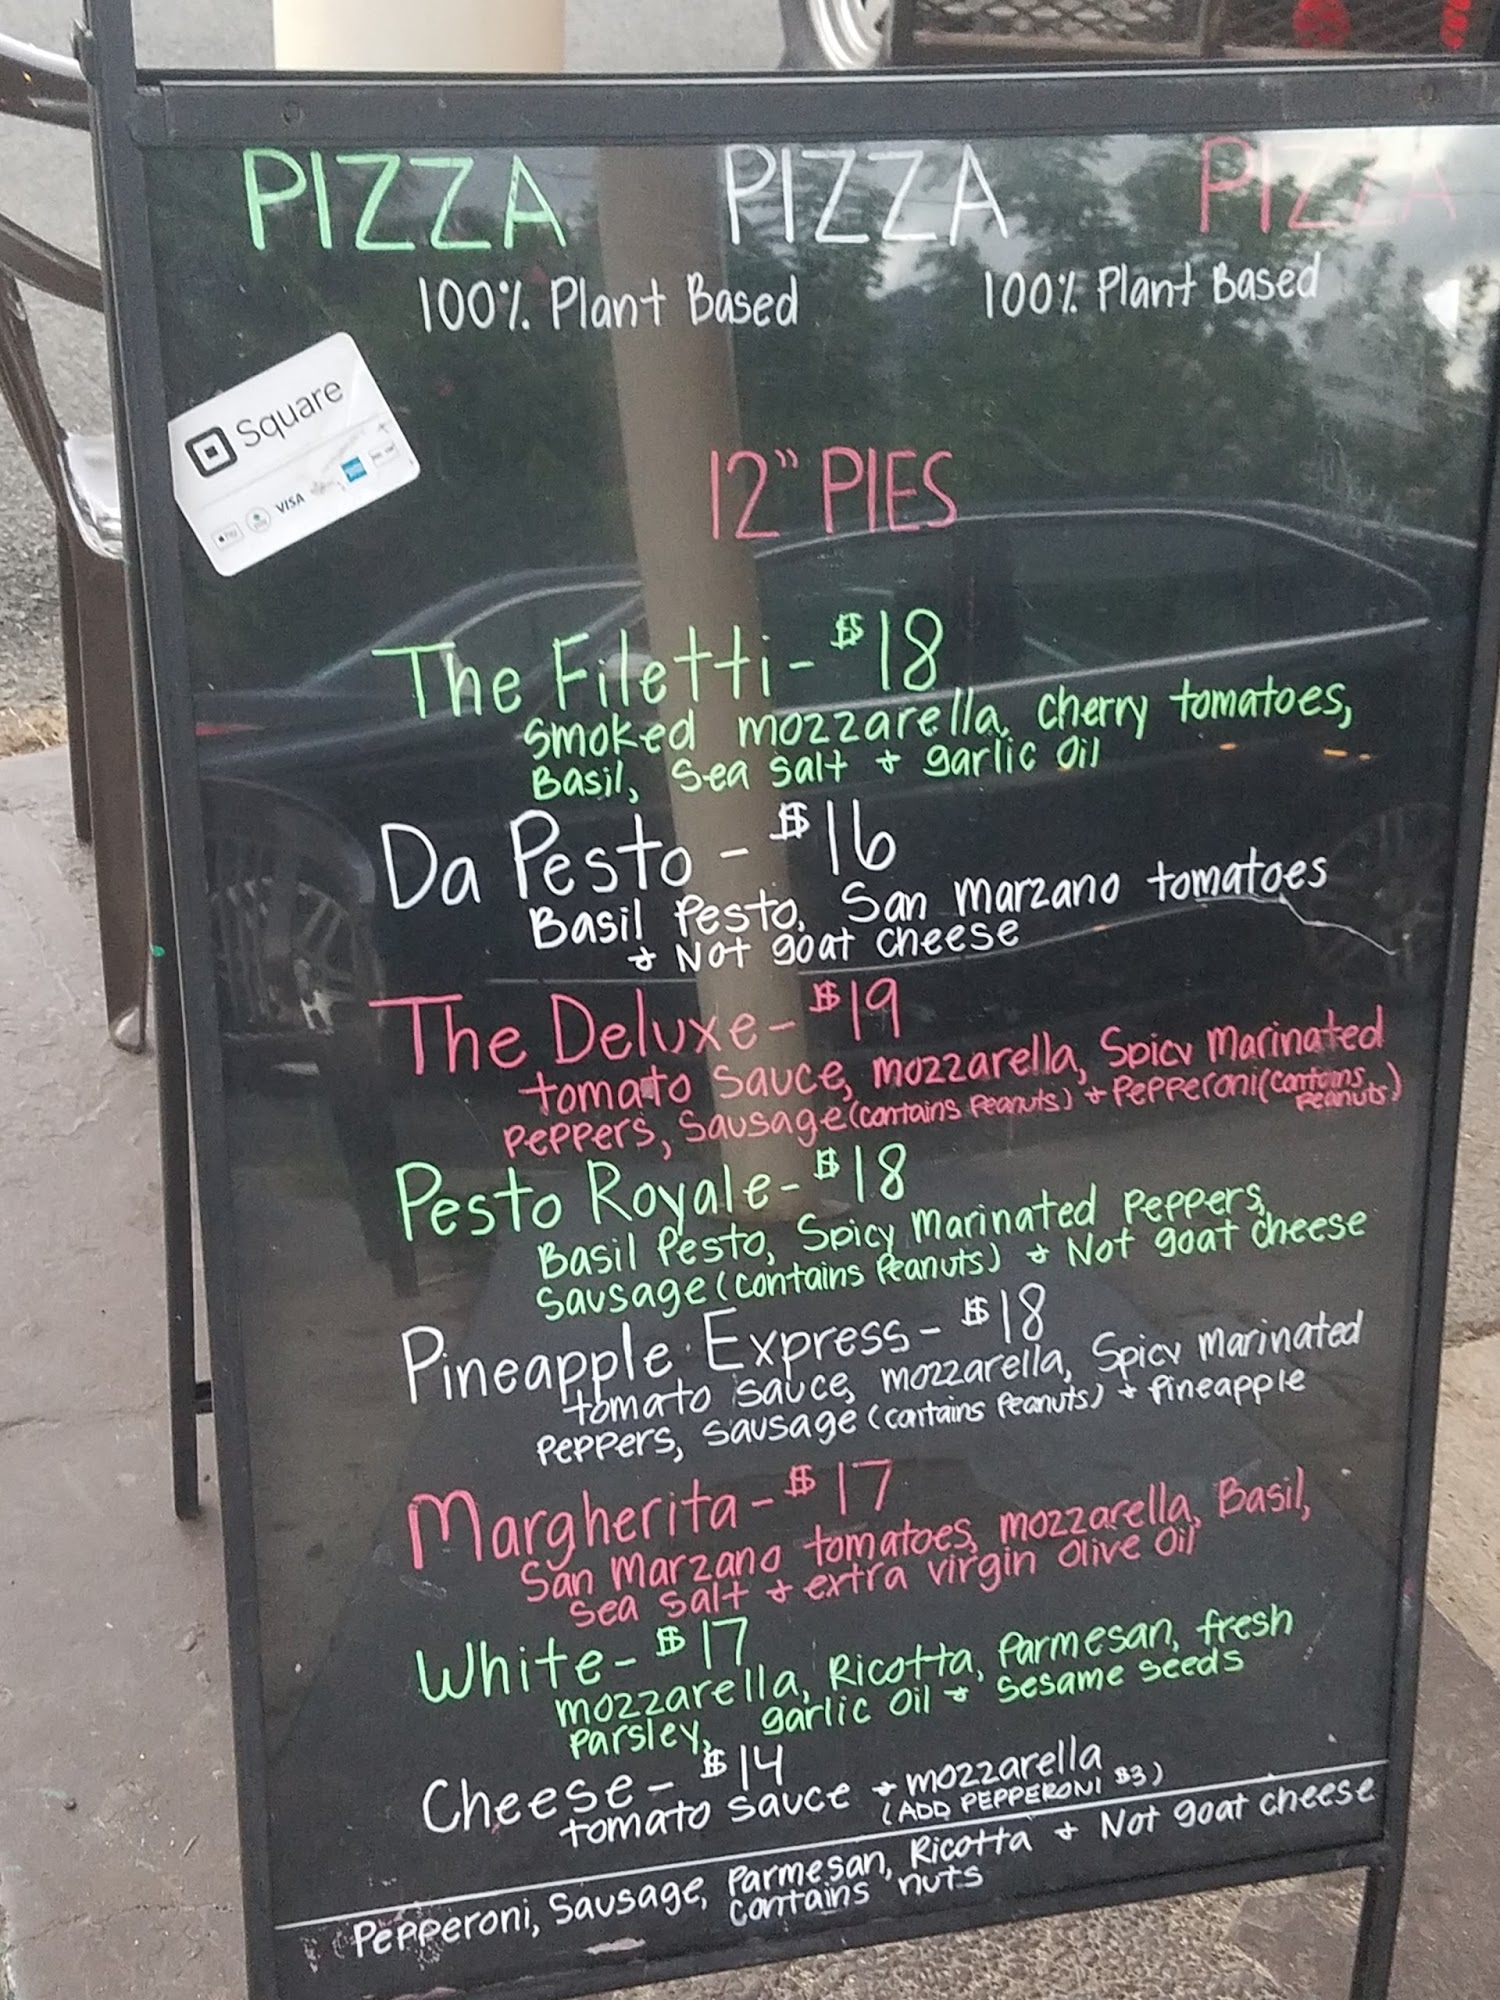 PIZZA PIZZA PIZZA
100% Plant Based 100% Plant Based
Square
Pay VISA
12" PIES
The Filetti - $18
Smoked mozzarella, cherry tomatoes,
Basil, Sea Salt + garlic oil
Da Pesto - $16
Basil Pesto, San Marzano tomatoes
+ Not goat cheese
The Deluxe - $19
tomato sauce, mozzarella, Spicy Marinated
Peppers, Sausage (contains Peanuts) + Pepperoni (contains
Peanuts)
Pesto Royale - $18
Basil Pesto, Spicy Marinated Peppers,
Sausage (contains Peanuts) + Not goat cheese
Pineapple Express - $18
tomato sauce, mozzarella, Spicy Marinated
Peppers, Sausage (contains Peanuts) + Pineapple
Margherita - $17
San Marzano tomatoes, mozzarella, Basil,
Sea Salt + extra virgin Olive Oil
White - $17
mozzarella, Ricotta, Parmesan, fresh
Parsley, garlic oil + Sesame Seeds
Cheese - $14
tomato sauce + mozzarella
(ADD PEPPERONI $3)
Pepperoni, Sausage, Parmesan, Ricotta + Not goat cheese
contains nuts